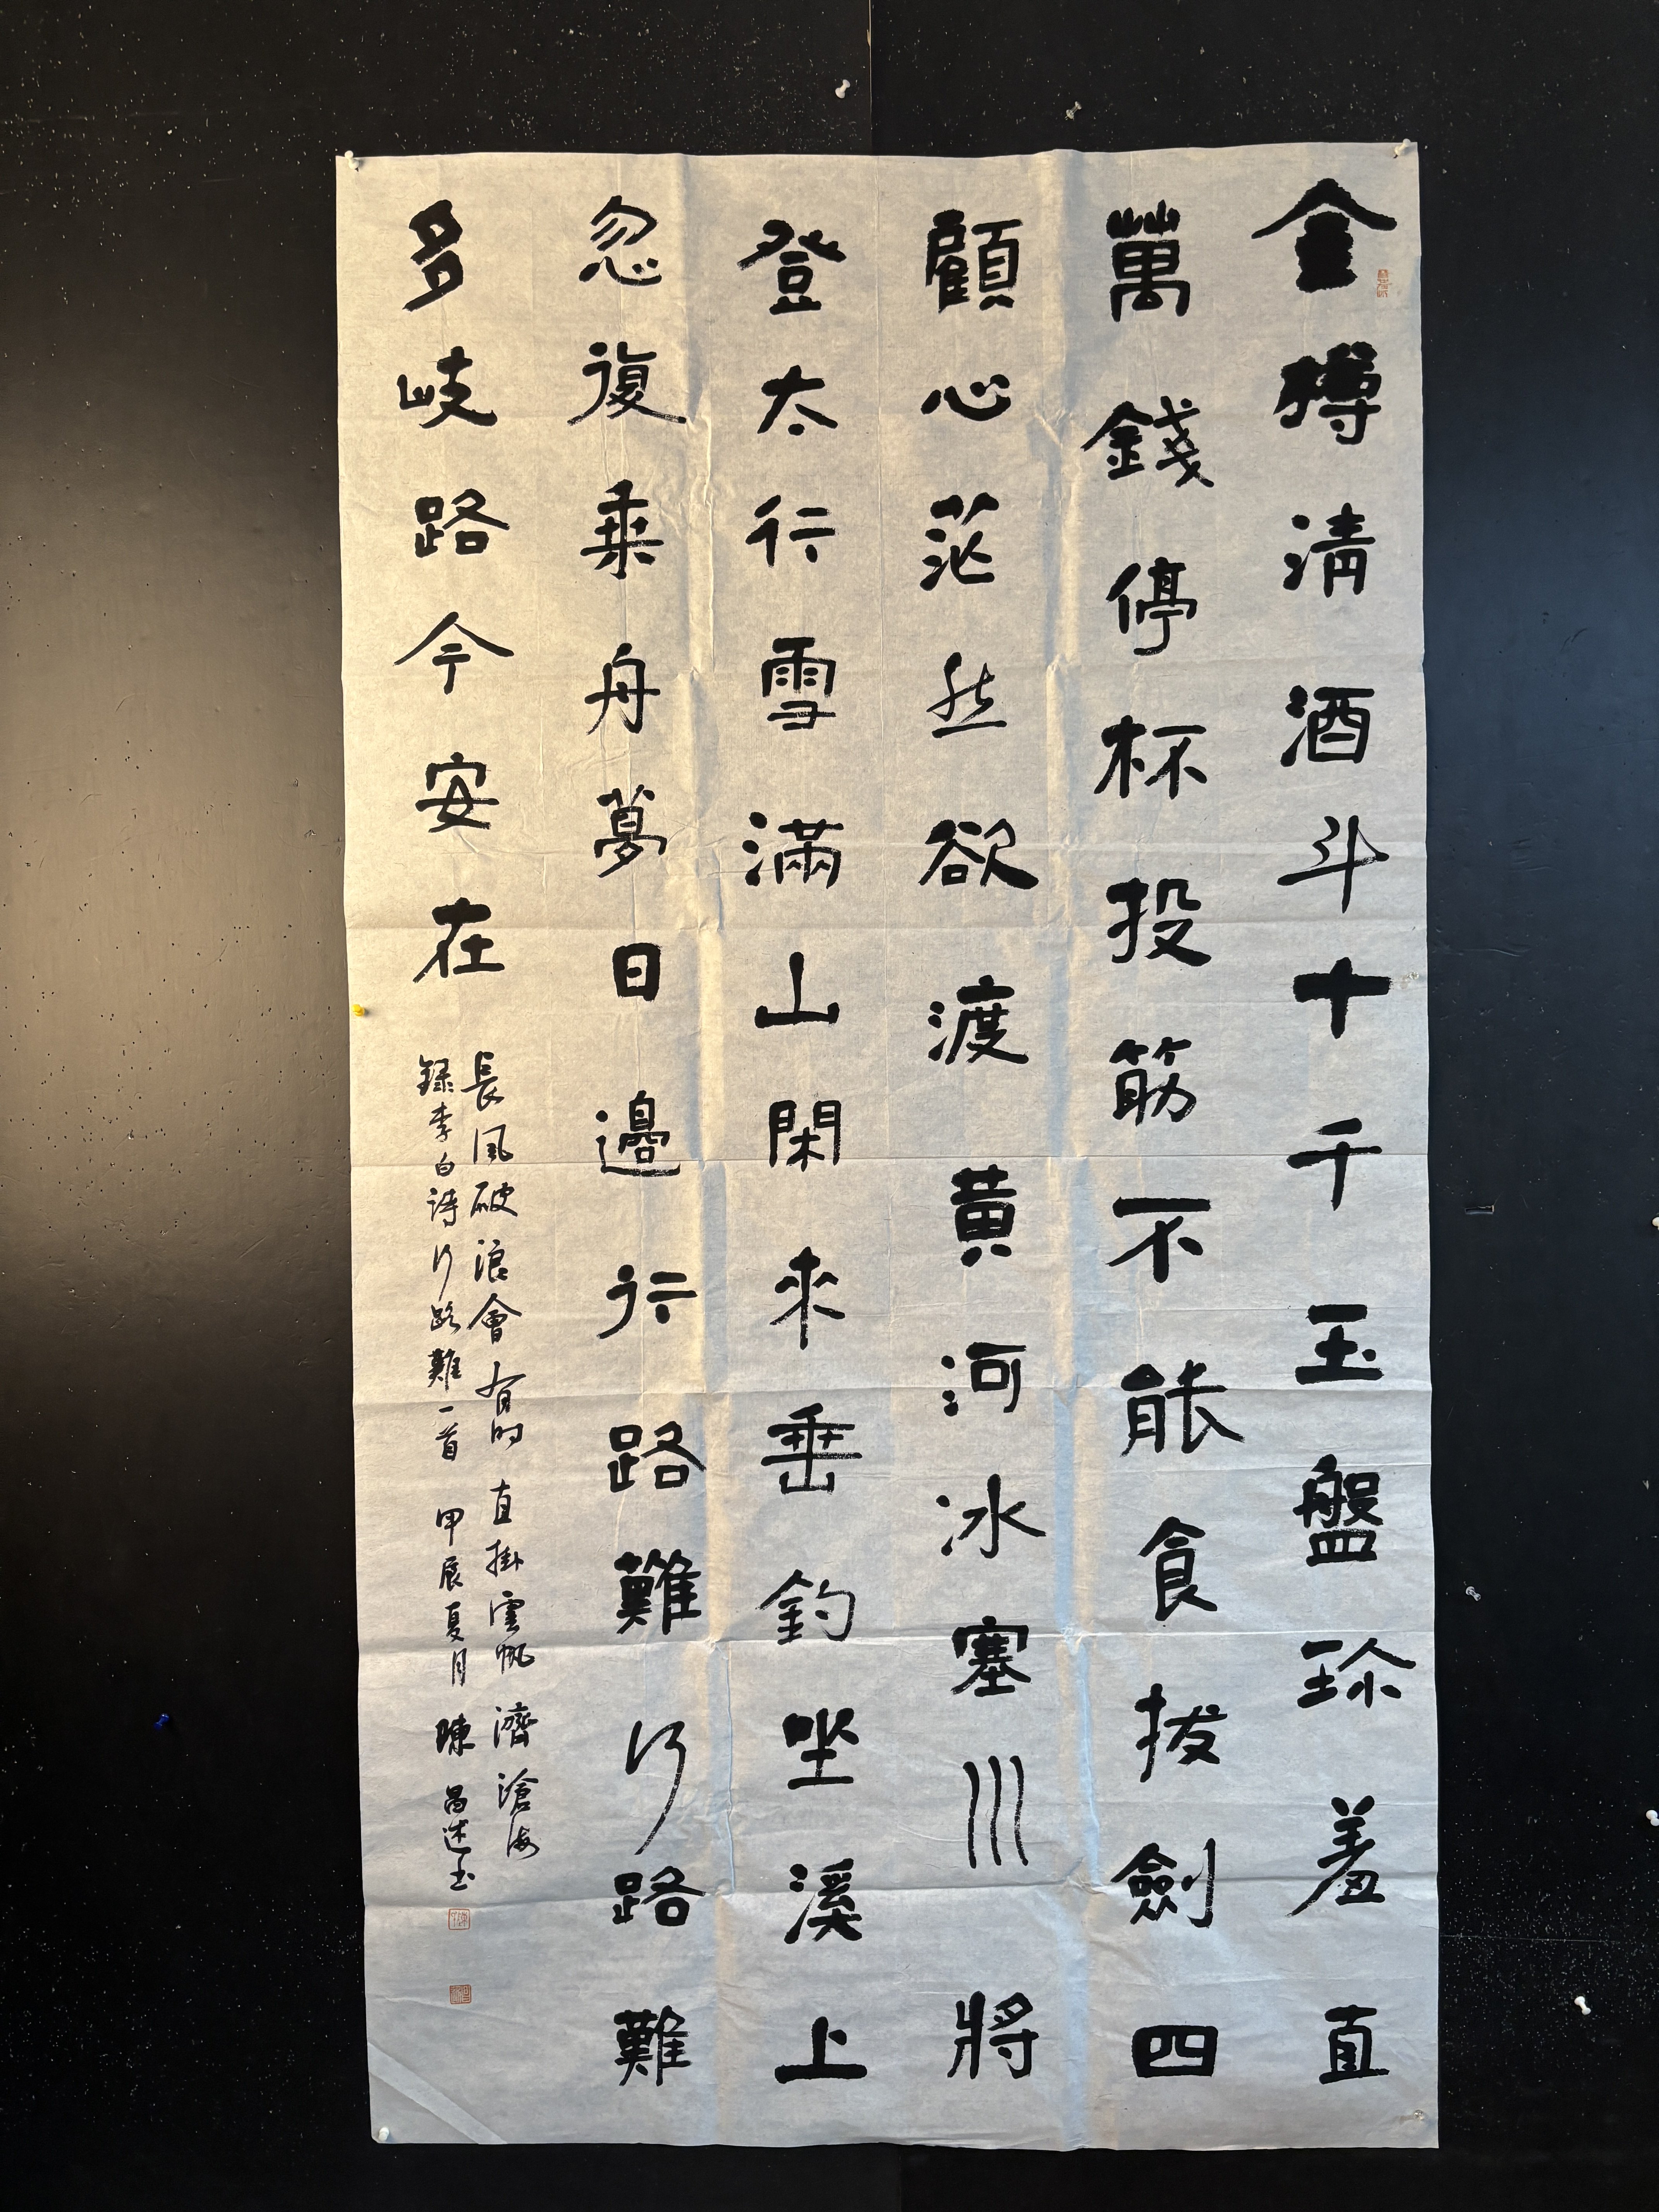 金樽清酒斗十千玉盤珍羞直
萬錢停杯投筋不能食拔劍四
顧心茫然欲渡黃河冰塞川將
登太行雪滿山閑來垂釣坐溪上
忽復乘舟夢日邊行路難行路難
多岐路今安在
長風破浪會有时直掛雲帆濟滄海
録李白詩行路難一首 甲辰夏月 陳昌述书